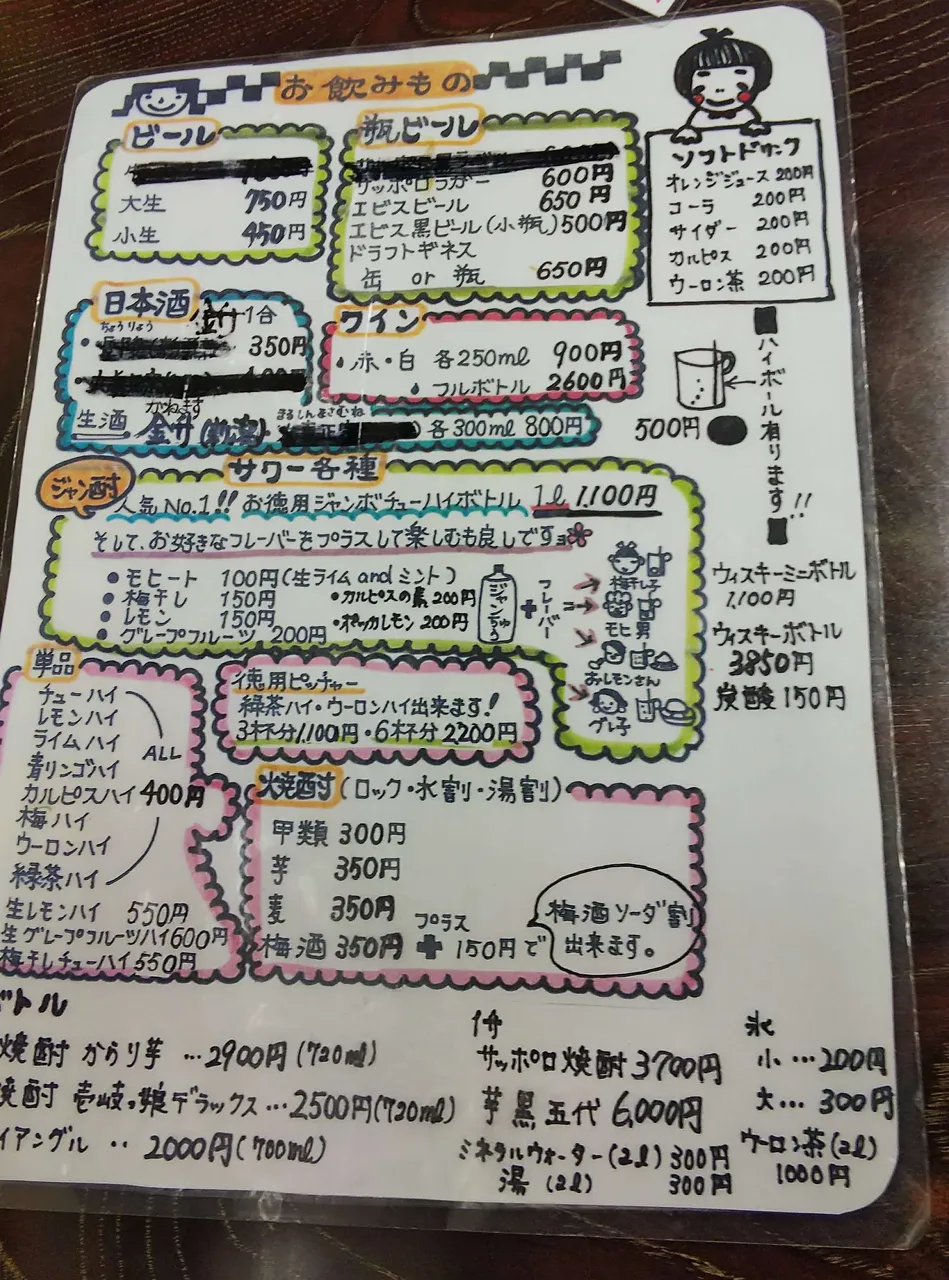 お飲みもの
ビール
大生 750円
小生 450円
瓶ビール
サッポロラガー 600円
エビスビール 650円
エビス黒ビール(小瓶)500円
ドラフトギネス
缶 or 瓶 650円
ソフトドリンク
オレンジジュース 200円
コーラ 200円
サイダー 200円
カルピス 200円
ウーロン茶 200円
日本酒 1合
ちょうりょう
350円
かねます まるしんまさむね
生酒 金升(新潟) 各300ml 800円
ワイン
・赤・白 各250ml 900円
フルボトル 2600円
ハイボール有ります!!
500円
サワー各種
ジャン酎
人気No.1!! お徳用ジャンボチューハイボトル 1ℓ 1,100円
そして、お好きなフレーバーをプラスして楽しむも良しですョ
●モヒート 100円(生ライムandミント)
●梅干し 150円 •カルピスの素 200円
●レモン 150円 •ポッカレモン 200円
●グレープフルーツ 200円
ジャンちゅう
+
フレーバー
梅干し子
モヒ男
おレモンさん
グレ子
ウィスキーミニボトル
1,100円
ウィスキーボトル
3850円
炭酸 150円
単品
チューハイ
レモンハイ
ライムハイ
青リンゴハイ
カルピスハイ
梅ハイ
ウーロンハイ
緑茶ハイ
ALL
400円
生レモンハイ 550円
生グレープフルーツハイ600円
梅干しチューハイ550円
徳用ピッチャー
緑茶ハイ・ウーロンハイ出来ます!
3杯分1,100円・6杯分2200円
焼酎(ロック・水割・湯割)
甲類 300円
芋 350円
麦 350円
梅酒 350円 プラス + 150円で
梅酒ソーダ割
出来ます。
ボトル
焼酎 からり芋 …2900円(720ml)
焼酎 壱岐っ娘デラックス…2500円(720ml)
イアングル ‥ 2000円(700ml)
サッポロ焼酎 3700円
芋 黒 五代 6,000円
ミネラルウォーター(2ℓ) 300円
湯 (2ℓ) 300円
氷
小 …200円
大… 300円
ウーロン茶(2ℓ)
1000円